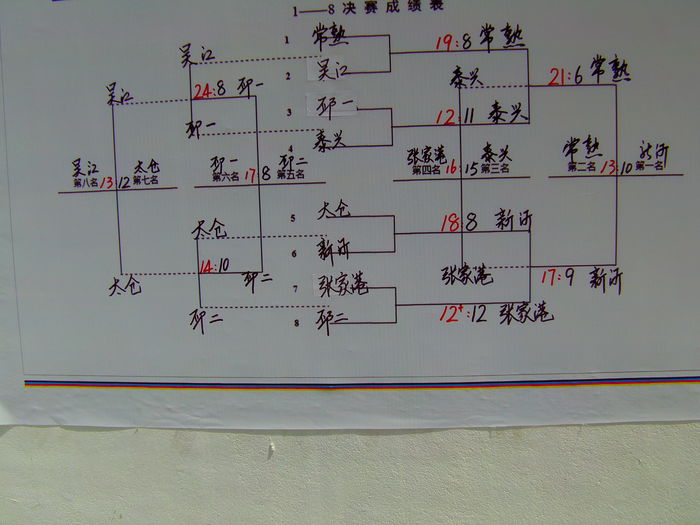 1——8决赛成绩表
1 常熟
19:8 常熟
吴江
2 吴江
泰兴
21:6 常熟
吴江
24:8 邳一
3 邳一
12:11 泰兴
邳一
4 泰兴
吴江 13:12 太仓
第八名 第七名
邳一 17:8 邳二
第六名 第五名
张家港 16:15 泰兴
第四名 第三名
常熟 13:10 新沂
第二名 第一名
5 太仓
18:8 新沂
太仓
6 新沂
14:10 邳二
张家港
17:9 新沂
太仓
7 张家港
12+:12 张家港
邳二
8 邳二